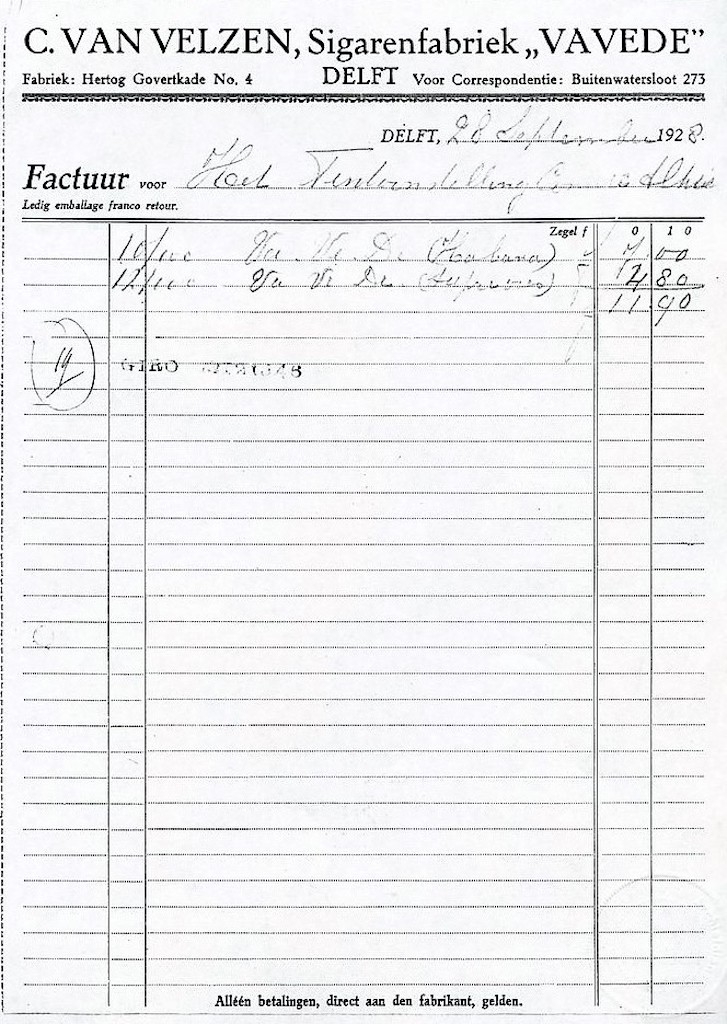 C. VAN VELZEN, Sigarenfabriek „VAVEDE”
Fabriek: Hertog Govertkade No. 4 DELFT Voor Correspondentie: Buitenwatersloot 273
DELFT, 28 September 1928.
Factuur voor Het
Ledig emballage franco retour.
Zegel f 0 10
10/100 Va Ve De (Habana) 7 00
12/100 Va Ve De 4 80
11 90
19 GIRO
Alléén betalingen, direct aan den fabrikant, gelden.